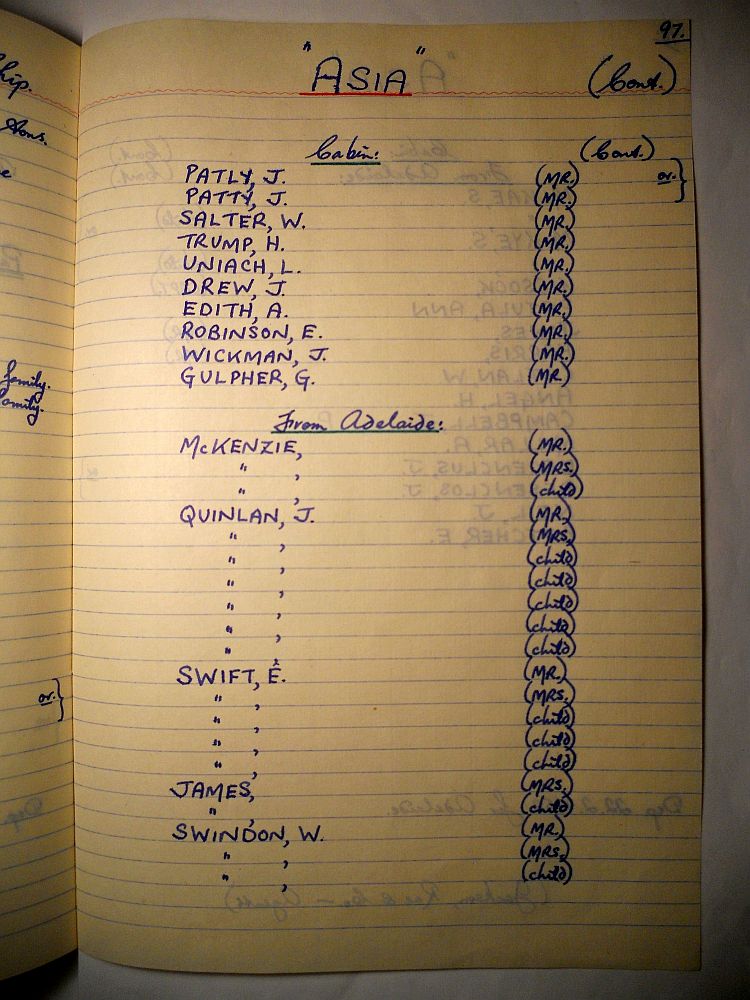 97.
"ASIA" (Cont.)
Cabin: (Cont.)
PATLY, J. (MR.) or }
PATTY, J. (MR.)
SALTER, W. (MR.)
TRUMP, H. (MR.)
UNIACH, L. (MR.)
DREW, J. (MR.)
EDITH, A. (MR.)
ROBINSON, E. (MR.)
WICKMAN, J. (MR.)
GULPHER, G. (MR.)
From Adelaide:
McKENZIE, (MR.)
" , (MRS.)
" , (child)
QUINLAN, J. (MR.)
" , (MRS.)
" , (child)
" , (child)
" , (child)
" , (child)
" , (child)
SWIFT, E. (MR.)
" , (MRS.)
" , (child)
" , (child)
" , (child)
JAMES, (MRS.)
" , (child)
SWINDON, W. (MR.)
" , (MRS.)
" , (child)
hip.
Sons.
family.
family.
or }